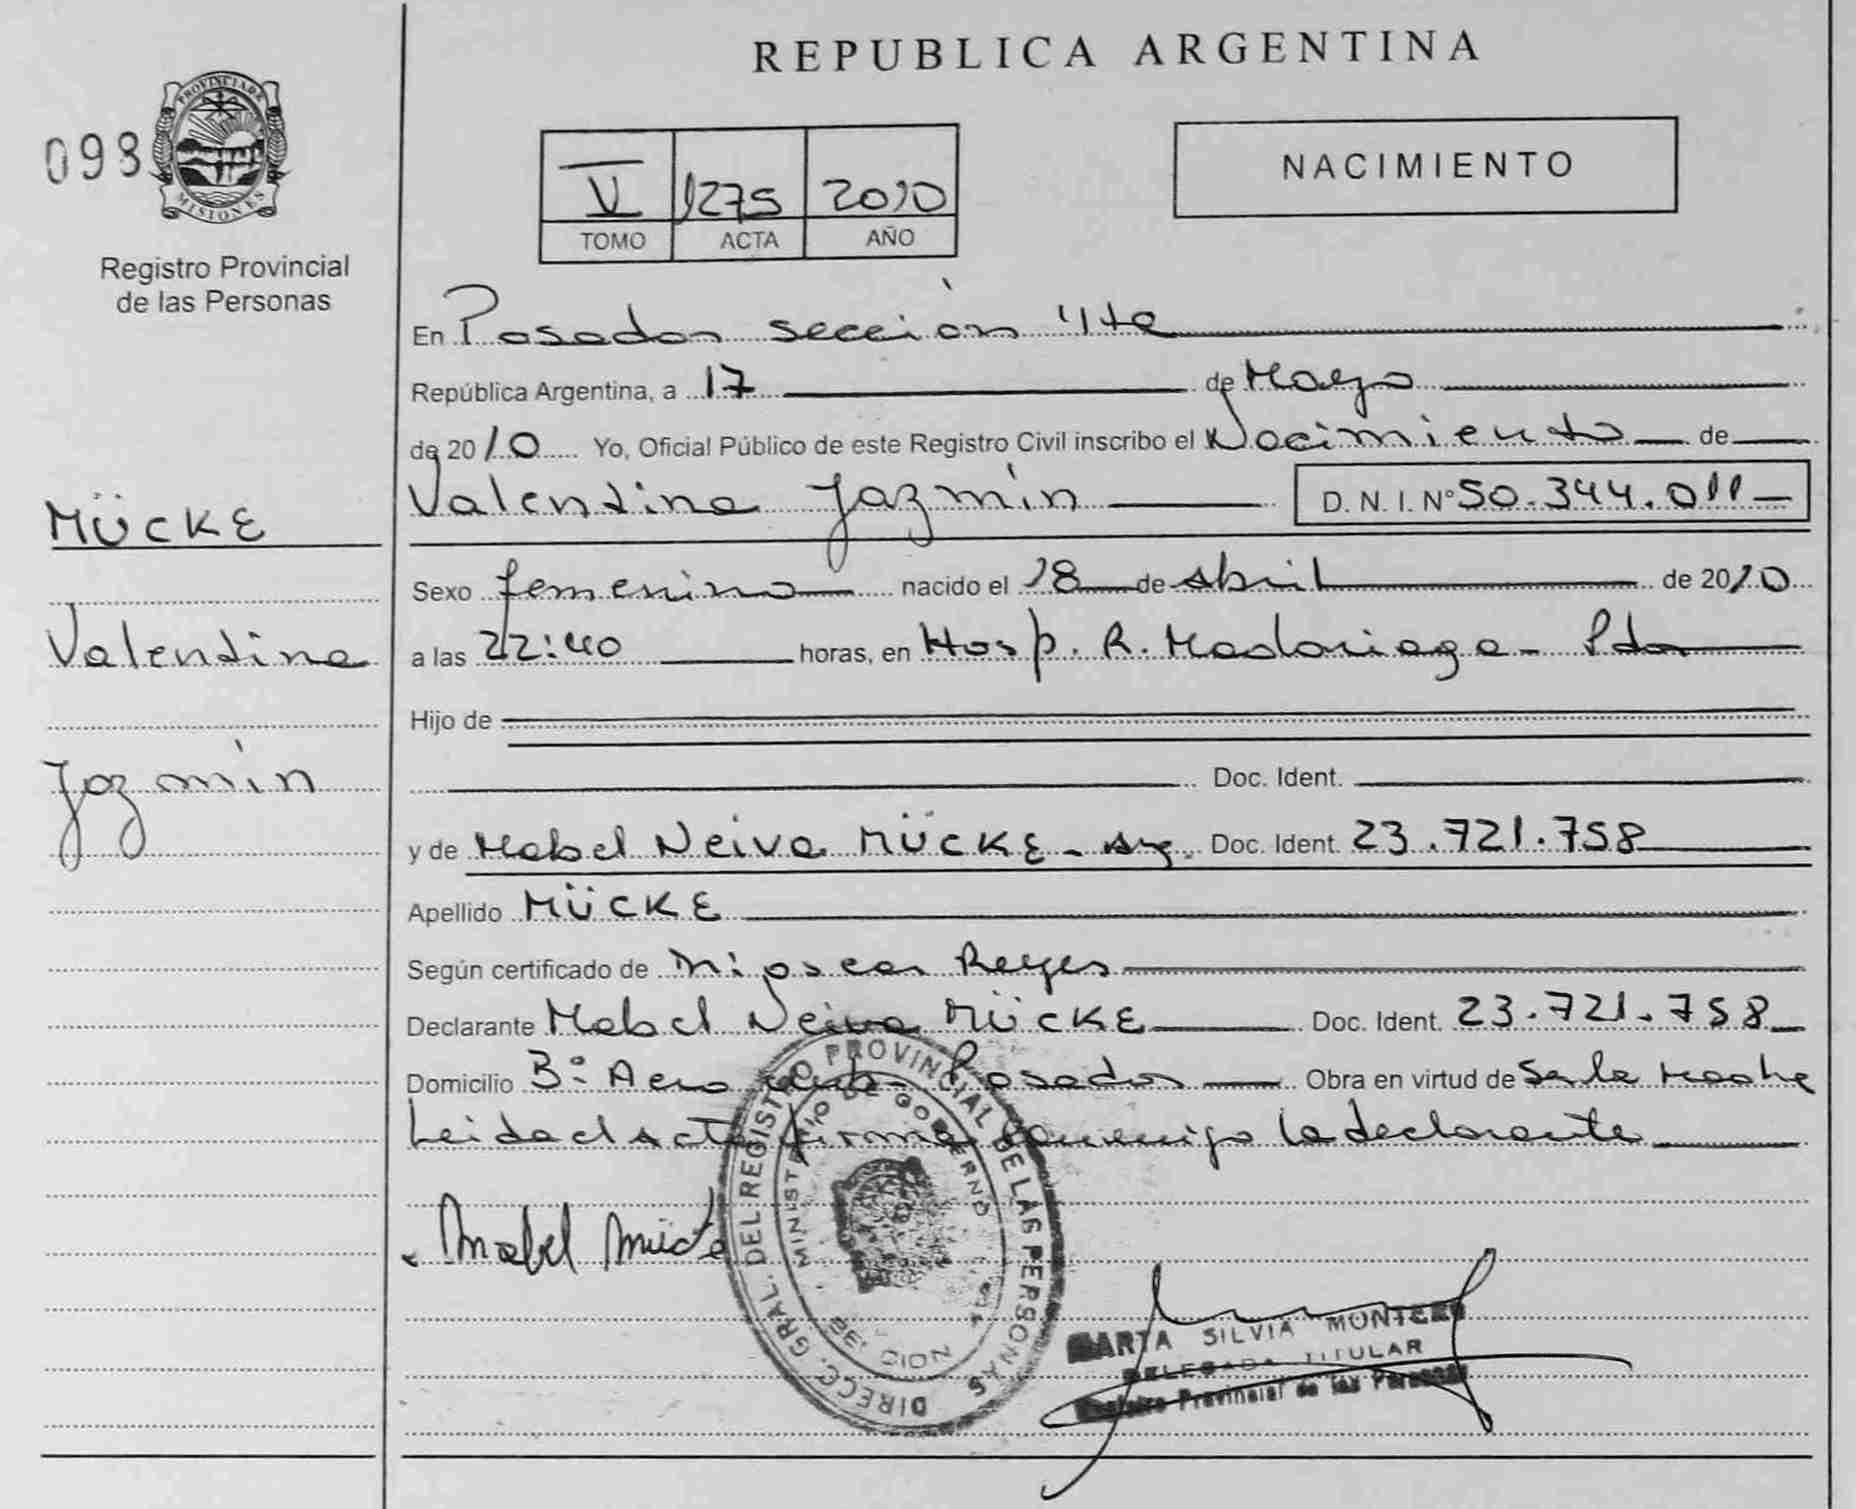 REPUBLICA ARGENTINA
098
PROVINCIA DE
MISIONES
Registro Provincial
de las Personas
V 1275 2010
TOMO ACTA AÑO
NACIMIENTO
En Posadas sección 4ta
República Argentina, a 17 de Mayo
de 2010 Yo, Oficial Público de este Registro Civil inscribo el Nacimiento de
Valentina Jazmín D. N. I. Nº 50.344.011
MÜCKE
Valentina
Jazmín
Sexo femenino nacido el 18 de Abril de 2010
a las 22:40 horas, en Hosp. R. Madariaga - Pdas
Hijo de
Doc. Ident.
y de Mabel Neiva MÜCKE - Arg. Doc. Ident. 23.721.758
Apellido MÜCKE
Según certificado de Reyes
Declarante Mabel Neiva MÜCKE Doc. Ident. 23.721.758
Domicilio Bº Aero club - Posadas Obra en virtud de Ser la Madre
Leida el Acta firma conmigo la declarante
Mabel Mücke
DIRECC. GRAL. DEL REGISTRO PROVINCIAL DE LAS PERSONAS
MINISTERIO DE GOBIERNO
MARTA SILVIA MONTERO
DELEGADA TITULAR
Registro Provincial de las Personas